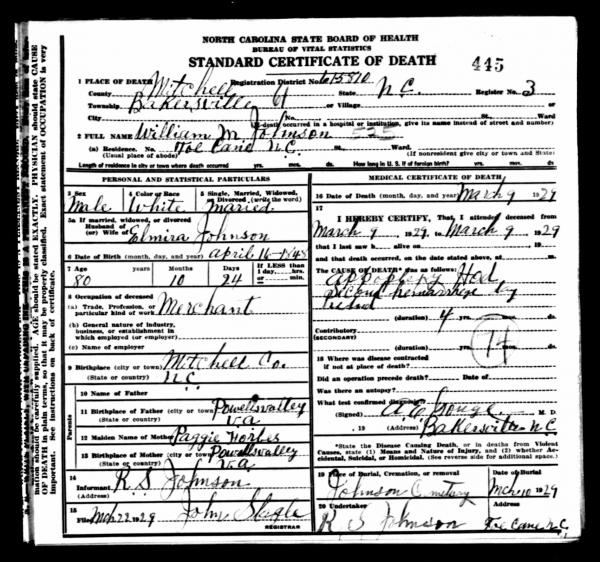 NORTH CAROLINA STATE BOARD OF HEALTH
BUREAU OF VITAL STATISTICS
STANDARD CERTIFICATE OF DEATH
445
1 PLACE OF DEATH
Registration District No.
County Mitchell State N.C. Register No. 3
Township Bakersville 4 or Village
City No. St. Ward
(If death occurred in a hospital or institution, give its name instead of street and number)
2 FULL NAME William M Johnson 525
(a) Residence. No. Toe Cane N.C. St. Ward.
(Usual place of abode) (If nonresident give city or town and State)
Length of residence in city or town where death occurred yrs. mos. ds. How long in U. S. if of foreign birth? yrs. mos. ds.
PERSONAL AND STATISTICAL PARTICULARS
3 Sex 4 Color or Race 5 Single, Married, Widowed, Divorced (write the word)
Male White Maried
5a If married, widowed, or divorced
Husband of
(or) Wife of Elmira Johnson
6 Date of Birth (month, day, and year) april 16-1848
7 Age Years Months Days If LESS than 1 day, hrs. or min.
80 10 24
8 Occupation of deceased
(a) Trade, Profession, or particular kind of work Merchant
(b) General nature of industry, business, or establishment in which employed (or employer)
(c) Name of employer
9 Birthplace (city or town) Mitchell Co.
(State or country) N.C.
Parents
10 Name of Father
11 Birthplace of Father (city or town) Powellsvalley
(State or country) va
12 Maiden Name of Mother Paggie Forbes
13 Birthplace of Mother (city or town) Powellsvalley
(State or country) va
14 Informant R. S. Johnson
(Address)
15 Filed Mch 22 1929 John Slagle
REGISTRAR
MEDICAL CERTIFICATE OF DEATH
16 Date of Death (month, day, and year) March 9 1929
17
I HEREBY CERTIFY, That I attended deceased from
March 9, 1929, to March 9, 1929
that I last saw h alive on 19
and that death occurred, on the date stated above, at m.
The CAUSE OF DEATH* was as follows:
appoplexy Had
second hemarrhage
(duration) yrs. mos. ds.
Contributory
(SECONDARY)
(duration) yrs. mos. ds.
18 Where was disease contracted
if not at place of death?
Did an operation precede death? Date of
Was there an autopsy?
What test confirmed diagnosis?
(Signed) A E Gouge M. D.
, 19 (Address) Bakersville N.C.
*State the Disease Causing Death, or in deaths from Violent Causes, state (1) Means and Nature of Injury, and (2) whether Accidental, Suicidal, or Homicidal. (See reverse side for additional space.)
19 Place of Burial, Cremation, or removal Date of Burial
Johnson Cemetary Mch 10 1929
20 Undertaker Address
R S Johnson Toe Cane N.C.
mation should be carefully supplied. AGE should be stated EXACTLY. PHYSICIAN should state CAUSE
OF DEATH in plain terms, so that it may be properly classified. Exact statement of OCCUPATION is very
important. See instructions on back of certificate.